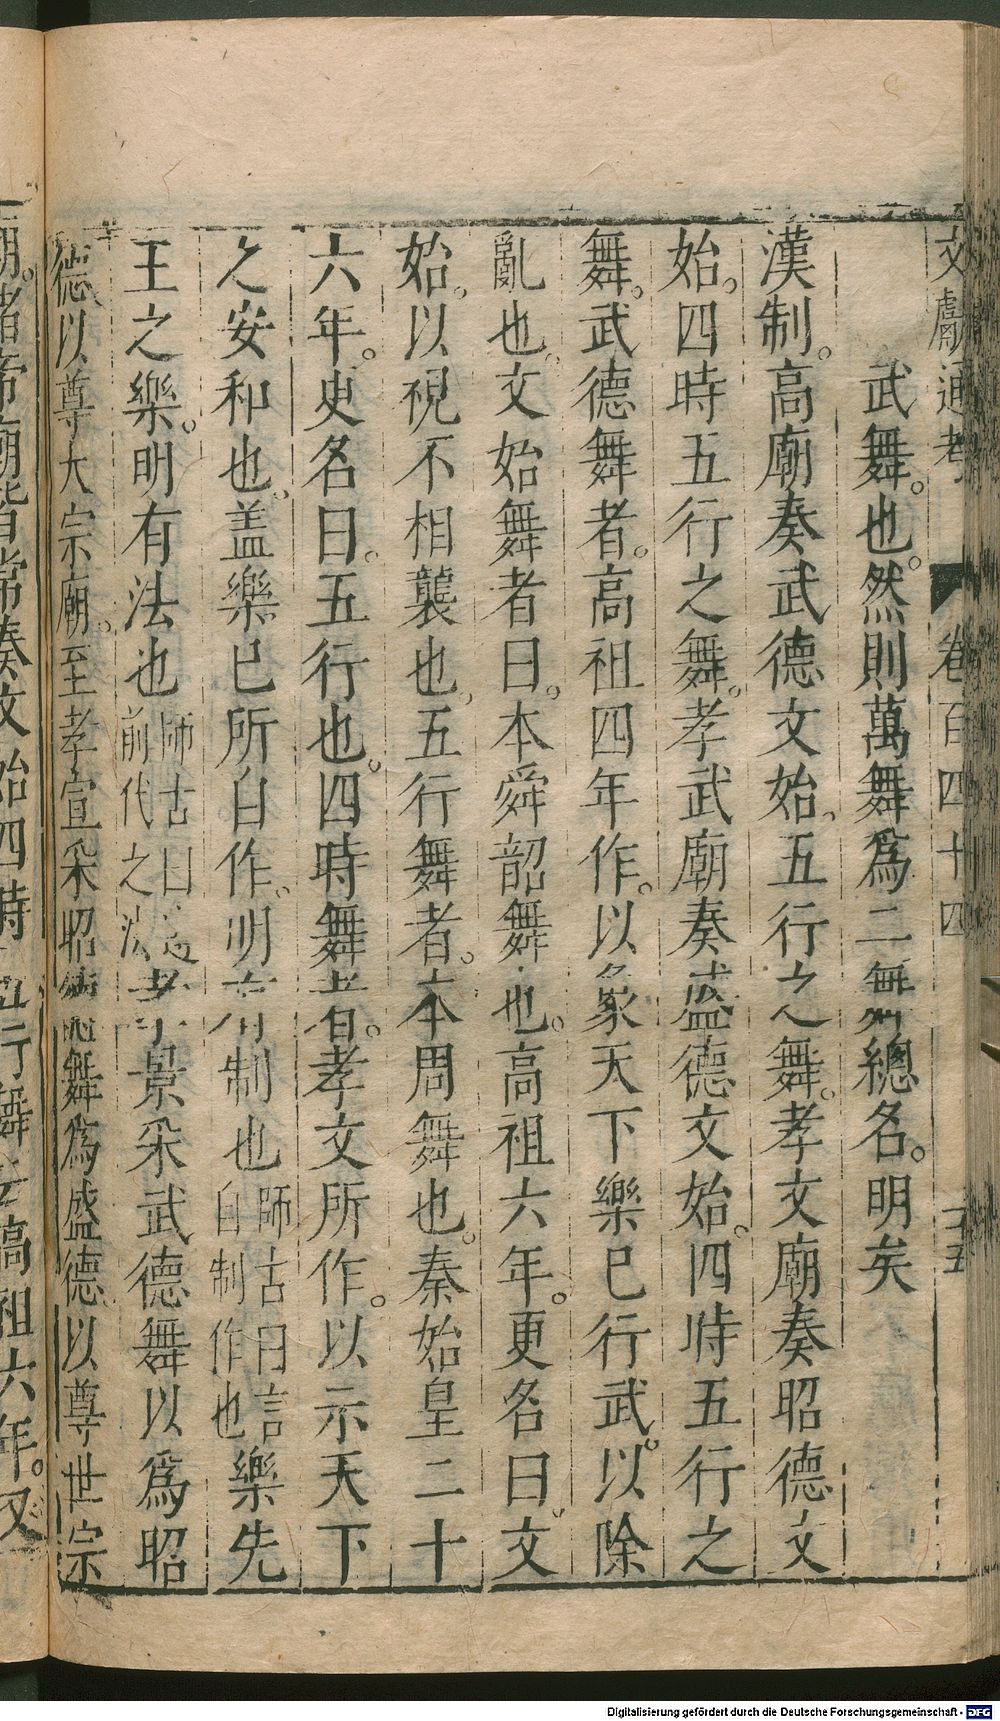 文獻通考 卷百四十四 十五
武舞。也。然則萬舞爲二舞總名。明矣
漢制。高廟奏武德文始。五行之舞。孝文廟奏昭德文
始。四時五行之舞。孝武廟奏盛德文始。四時五行之
舞。武德舞者。高祖四年作。以象天下樂已行武。以除
亂也。文始舞者曰。本舜韶舞也。高祖六年。更名曰。文
始。以視不相襲也。五行舞者。本周舞也。秦始皇二十
六年。更名曰。五行也。四時舞者。孝文所作。以示天下
之安和也。盖樂已所自作。明有制也師古曰言自制作也樂先
王之樂。明有法也師古曰前代之法孝景采武德舞以爲昭
德以尊大宗廟。至孝宣采昭德舞爲盛德以尊世宗
廟。諸帝廟皆常奏文始四時五行舞云高祖六年。又
Digitalisierung gefördert durch die Deutsche Forschungsgemeinschaft - DFG